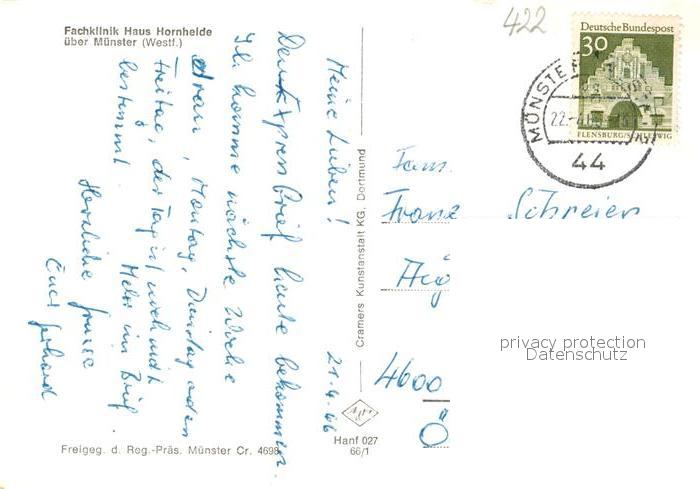 Fachklinik Haus Hornheide
über Münster (Westf.)
422
Deutsche Bundespost
30
FLENSBURG/SCHLESWIG
MÜNSTE
22.-4.
44
Meine Lieben!
21.4.66
Brief heute bekommen.
Ich komme nächste Woche
dran, Montag, Dienstag oder
Freitag, der Tag ist noch nicht
bestimmt. Mehr im Brief.
Herzliche Grüsse
Euer Gerhard
Cramers Kunstanstalt KG, Dortmund
Fam.
Franz Schreier
4600
Ö
privacy protection
Datenschutz
Freigeg. d. Reg.-Präs. Münster Cr. 4698
Hanf 027
66/1